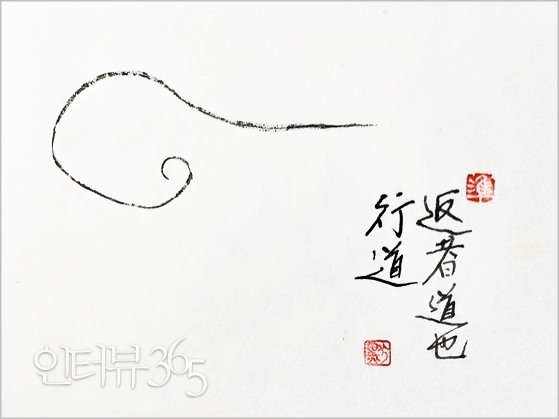 返者道也
行道
인터뷰365